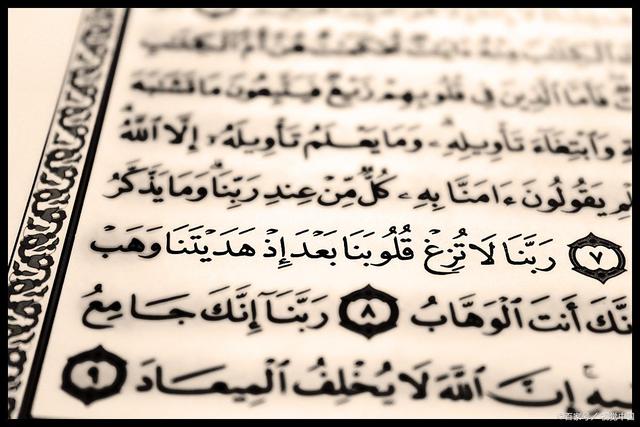 ٱلۡكِتَٰبَ مِنۡهُ ءَايَٰتٞ مُّحۡكَمَٰتٌ هُنَّ أُمُّ ٱلۡكِتَٰبِ
فَأَمَّا ٱلَّذِينَ فِي قُلُوبِهِمۡ زَيۡغٞ فَيَتَّبِعُونَ مَا تَشَٰبَهَ
وَٱبۡتِغَآءَ تَأۡوِيلِهِۦۖ وَمَا يَعۡلَمُ تَأۡوِيلَهُۥٓ إِلَّا ٱللَّهُۗ
يَقُولُونَ ءَامَنَّا بِهِۦ كُلّٞ مِّنۡ عِندِ رَبِّنَاۗ وَمَا يَذَّكَّرُ
٧ رَبَّنَا لَا تُزِغۡ قُلُوبَنَا بَعۡدَ إِذۡ هَدَيۡتَنَا وَهَبۡ
أَنتَ ٱلۡوَهَّابُ ٨ رَبَّنَآ إِنَّكَ جَامِعُ
إِنَّ ٱللَّهَ لَا يُخۡلِفُ ٱلۡمِيعَادَ ٩